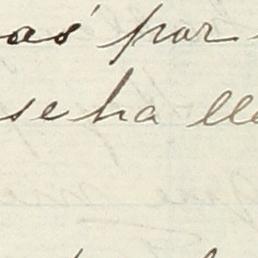 as por
se ha lle